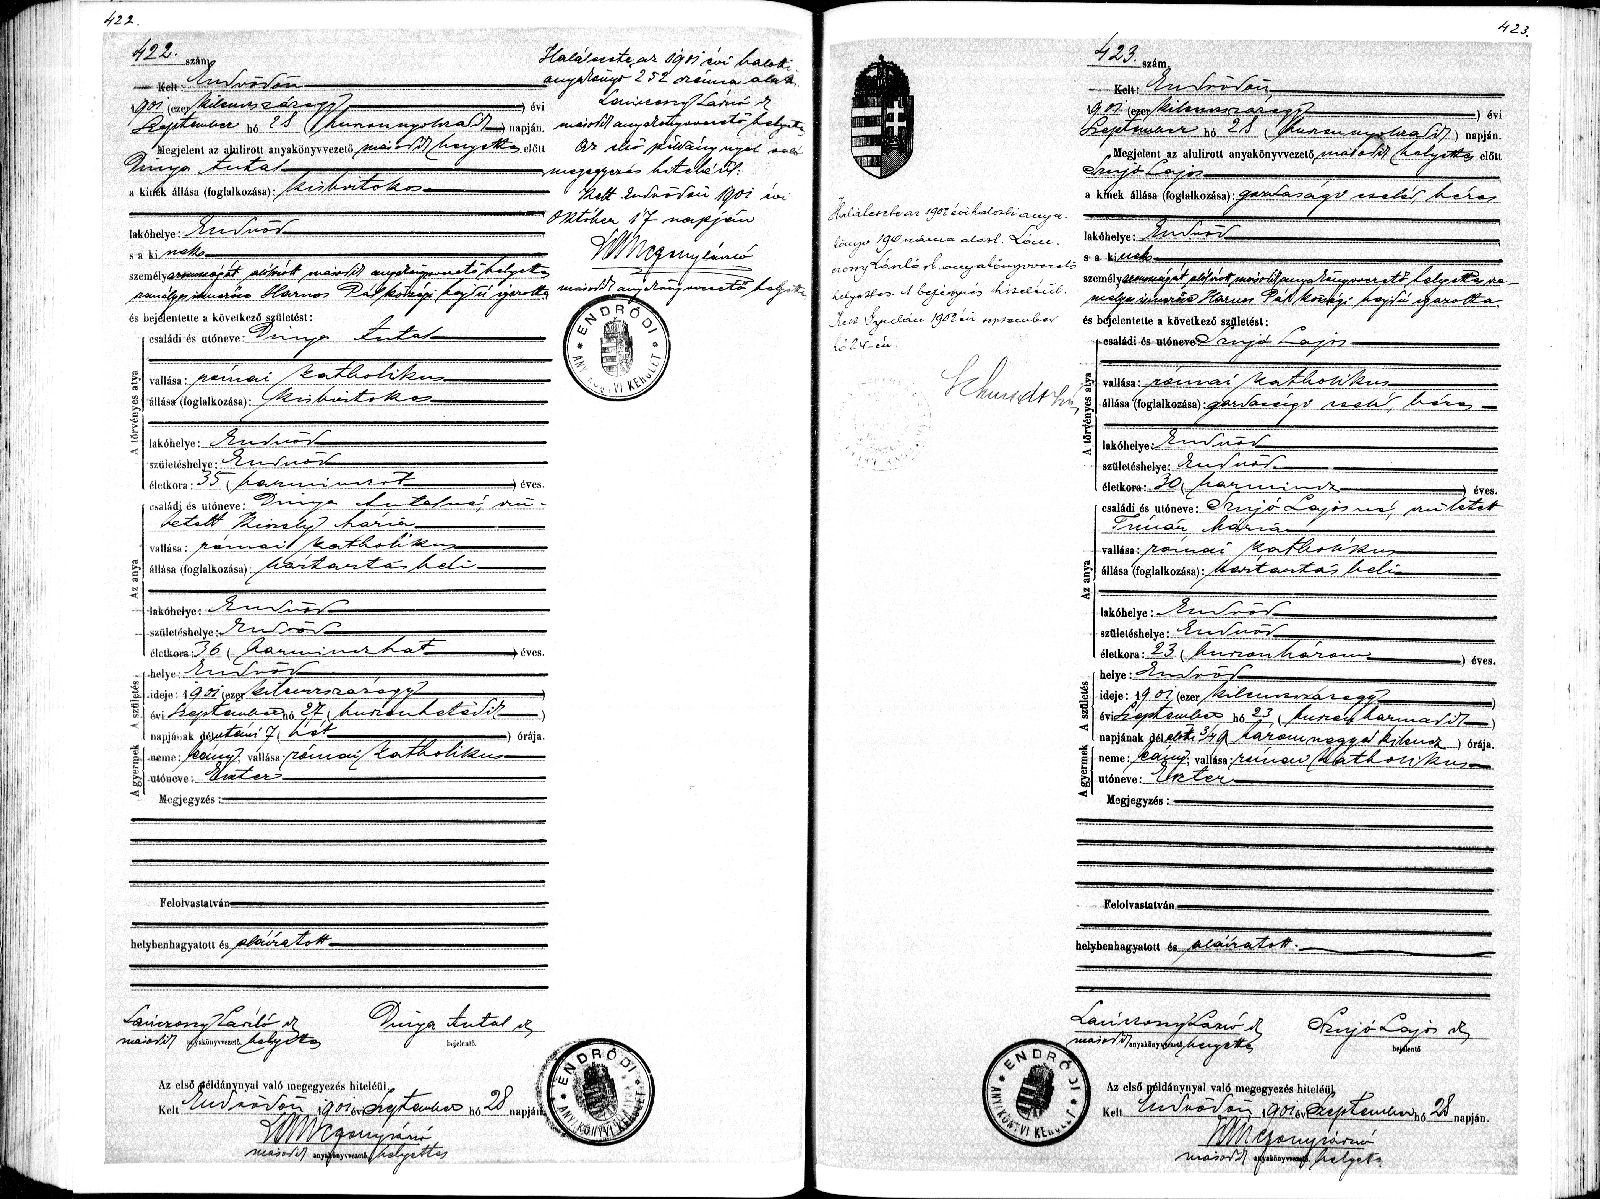 422.
422. szám.
Kelt Endrődön
1901 (ezer kilenczszázegy) évi
Szeptember hó 28 (huszonnyolczadik) napján.
Megjelent az alulirott anyakönyvvezető, második helyettes előtt
Dinya Antal
a kinek állása (foglalkozása): kisbirtokos
lakóhelye: Endrőd
s a ki nek
személyazonosságát alólirott második anyakönyvvezető helyettes
személyes ismerőse Harnos Pál községi hajdú igazolta
és bejelentette a következő születést:
A törvényes atya
családi és utóneve: Dinya Antal
vallása: római katholikus
állása (foglalkozása): kisbirtokos
lakóhelye: Endrőd
születéshelye: Endrőd
életkora: 35 (harminczöt) éves.
Az anya
családi és utóneve: Dinya Antalné, szü-
letett Király Mária
vallása: római katholikus
állása (foglalkozása): háztartásbeli
lakóhelye: Endrőd
születéshelye: Endrőd
életkora: 36 (harminczhat) éves.
A születés
helye: Endrőd
ideje: 1901 (ezer kilenczszázegy)
évi Szeptember hó 27 (huszonhetedik)
napjának délutáni 7 (hét) órája.
A gyermek
neme: leány, vallása római katholikus
utóneve: Eszter
Megjegyzés:
Felolvastatván
helybenhagyatott és aláiratott
Lánczony László sk
második anyakönyvvezető. helyettes
Dinya Antal sk
bejelentő.
Az első példánynyal való megegyezés hiteléül,
Kelt Endrődön 1901 évi Szeptember hó 28 napján.
második anyakönyvvezető. helyettes
ENDRŐDI ANYAKÖNYVI KERÜLET
Halálesete az 1901 évi halotti
anyakönyv 252 száma alatt.
Lánczony László sk
második anyakönyvvezető helyettes
Az első példánynyal való
megegyezés hiteléül.
Kelt Endrődön 1901 évi
Október 17 napján
második anyakönyvvezető helyettes
ENDRŐDI ANYAKÖNYVI KERÜLET
423.
423. szám.
Kelt: Endrődön
1901 (ezer kilenczszázegy) évi
Szeptember hó 28 (huszonnyolczadik) napján.
Megjelent az alulirott anyakönyvvezető, második helyettes előtt
Szujó Lajos
a kinek állása (foglalkozása): gazdasági cseléd, béres
lakóhelye: Endrőd
s a ki nek
személyazonosságát alólirott második anyakönyvvezető helyettes sze-
mélyes ismerőse Harnos Pál községi hajdú igazolta
és bejelentette a következő születést:
A törvényes atya
családi és utóneve Szujó Lajos
vallása: római katholikus
állása (foglalkozása): gazdasági cseléd, béres
lakóhelye: Endrőd
születéshelye: Endrőd
életkora: 30 (harmincz) éves.
Az anya
családi és utóneve: Szujó Lajosné, született
Tímár Mária
vallása: római katholikus
állása (foglalkozása): háztartásbeli
lakóhelye: Endrőd
születéshelye: Endrőd
életkora: 23 (huszonhárom) éves.
A születés
helye: Endrőd
ideje: 1901 (ezer kilenczszázegy)
évi Szeptember hó 23 (huszonharmadik)
napjának délelőtti 3/49 (háromnegyed kilencz) órája.
A gyermek
neme: leány, vallása: római katholikus
utóneve: Eszter
Megjegyzés:
Felolvastatván
helybenhagyatott és aláiratott.
Lánczony László sk
második anyakönyvvezető. helyettes
Szujó Lajos sk
bejelentő
Az első példánynyal való megegyezés hiteléül,
Kelt Endrődön 1901 évi Szeptember hó 28 napján.
második anyakönyvvezető. helyettes
ENDRŐDI ANYAKÖNYVI KERÜLET
Halálesete az 1902 évi halotti anya-
könyv 190 száma alatt. Lán-
czony László sk. anyakönyvvezető
helyettes. A bejegyzés hiteléül.
1902 évi szeptember
hó 24-én.
Schmidt